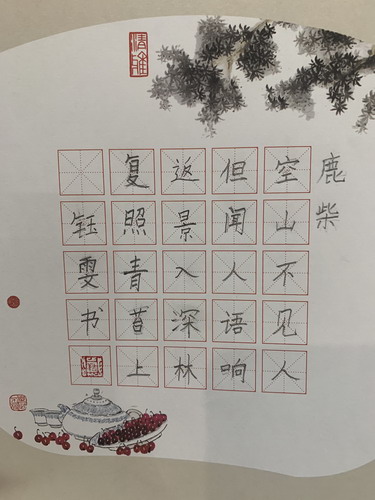 鹿柴
空山不见人
但闻人语响
返景入深林
复照青苔上
钰雯书
清雅